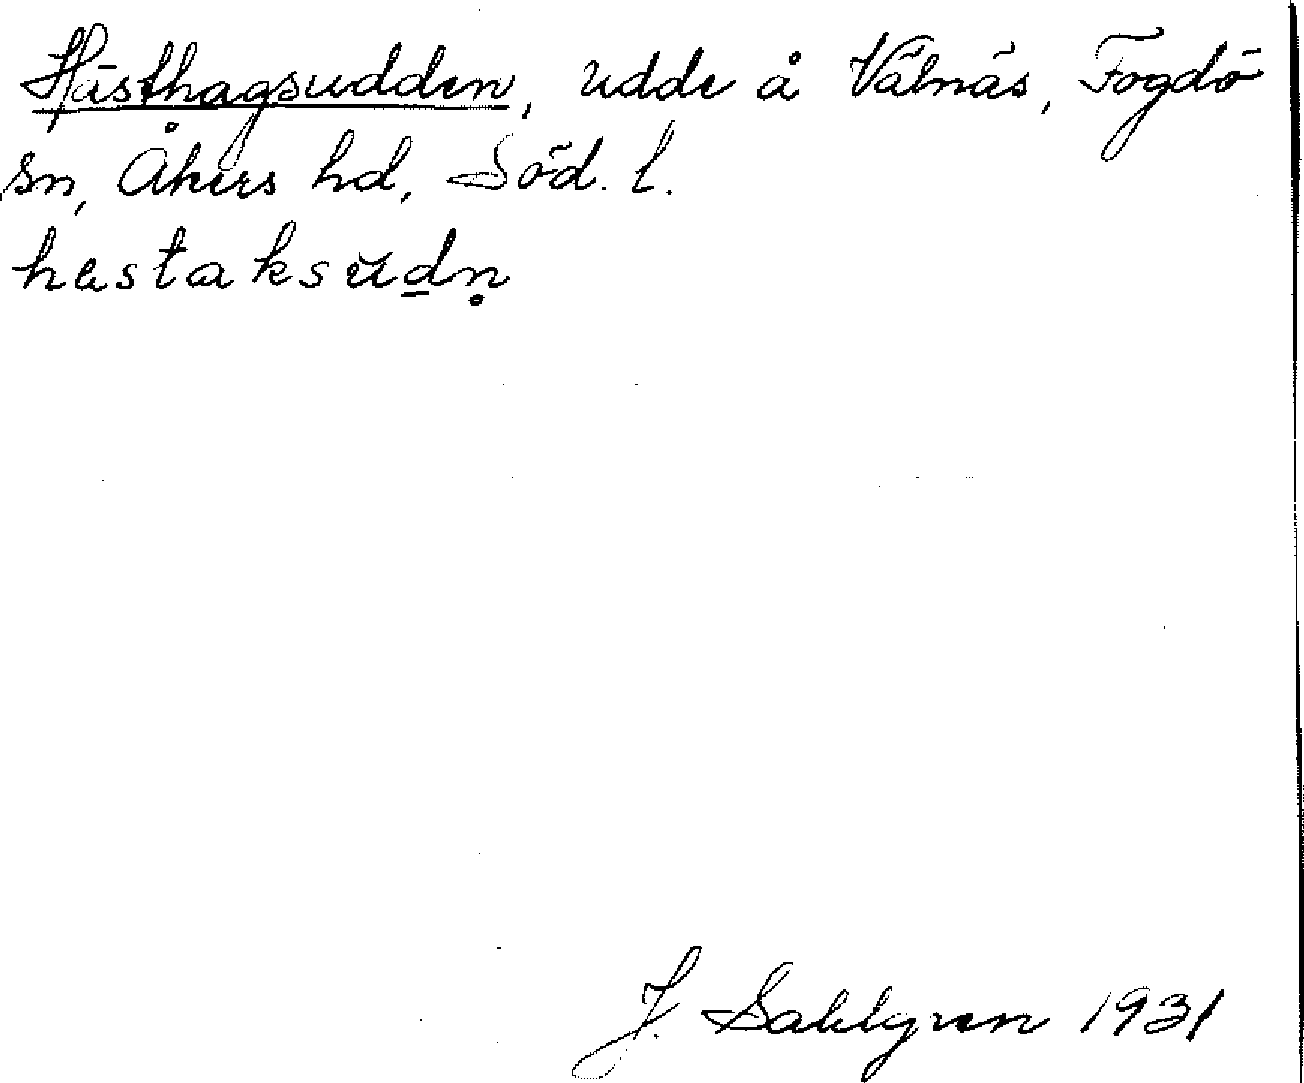 Hästhagsudden, udde å Vålnäs, Fogdö
sn, Åkers hd, Söd. l.
hestaksudn̥
J. Sahlgren 1931